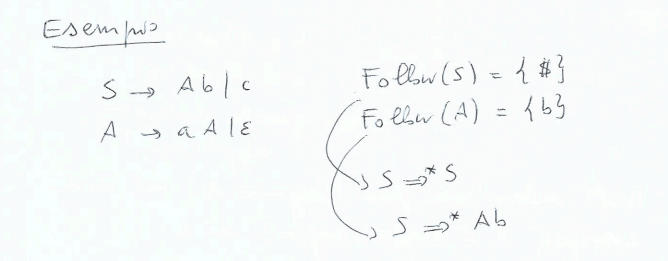 Esempio
S → Ab | c
A → aA | ε
Follow(S) = {$}
Follow(A) = {b}
S ⇒* S
S ⇒* Ab